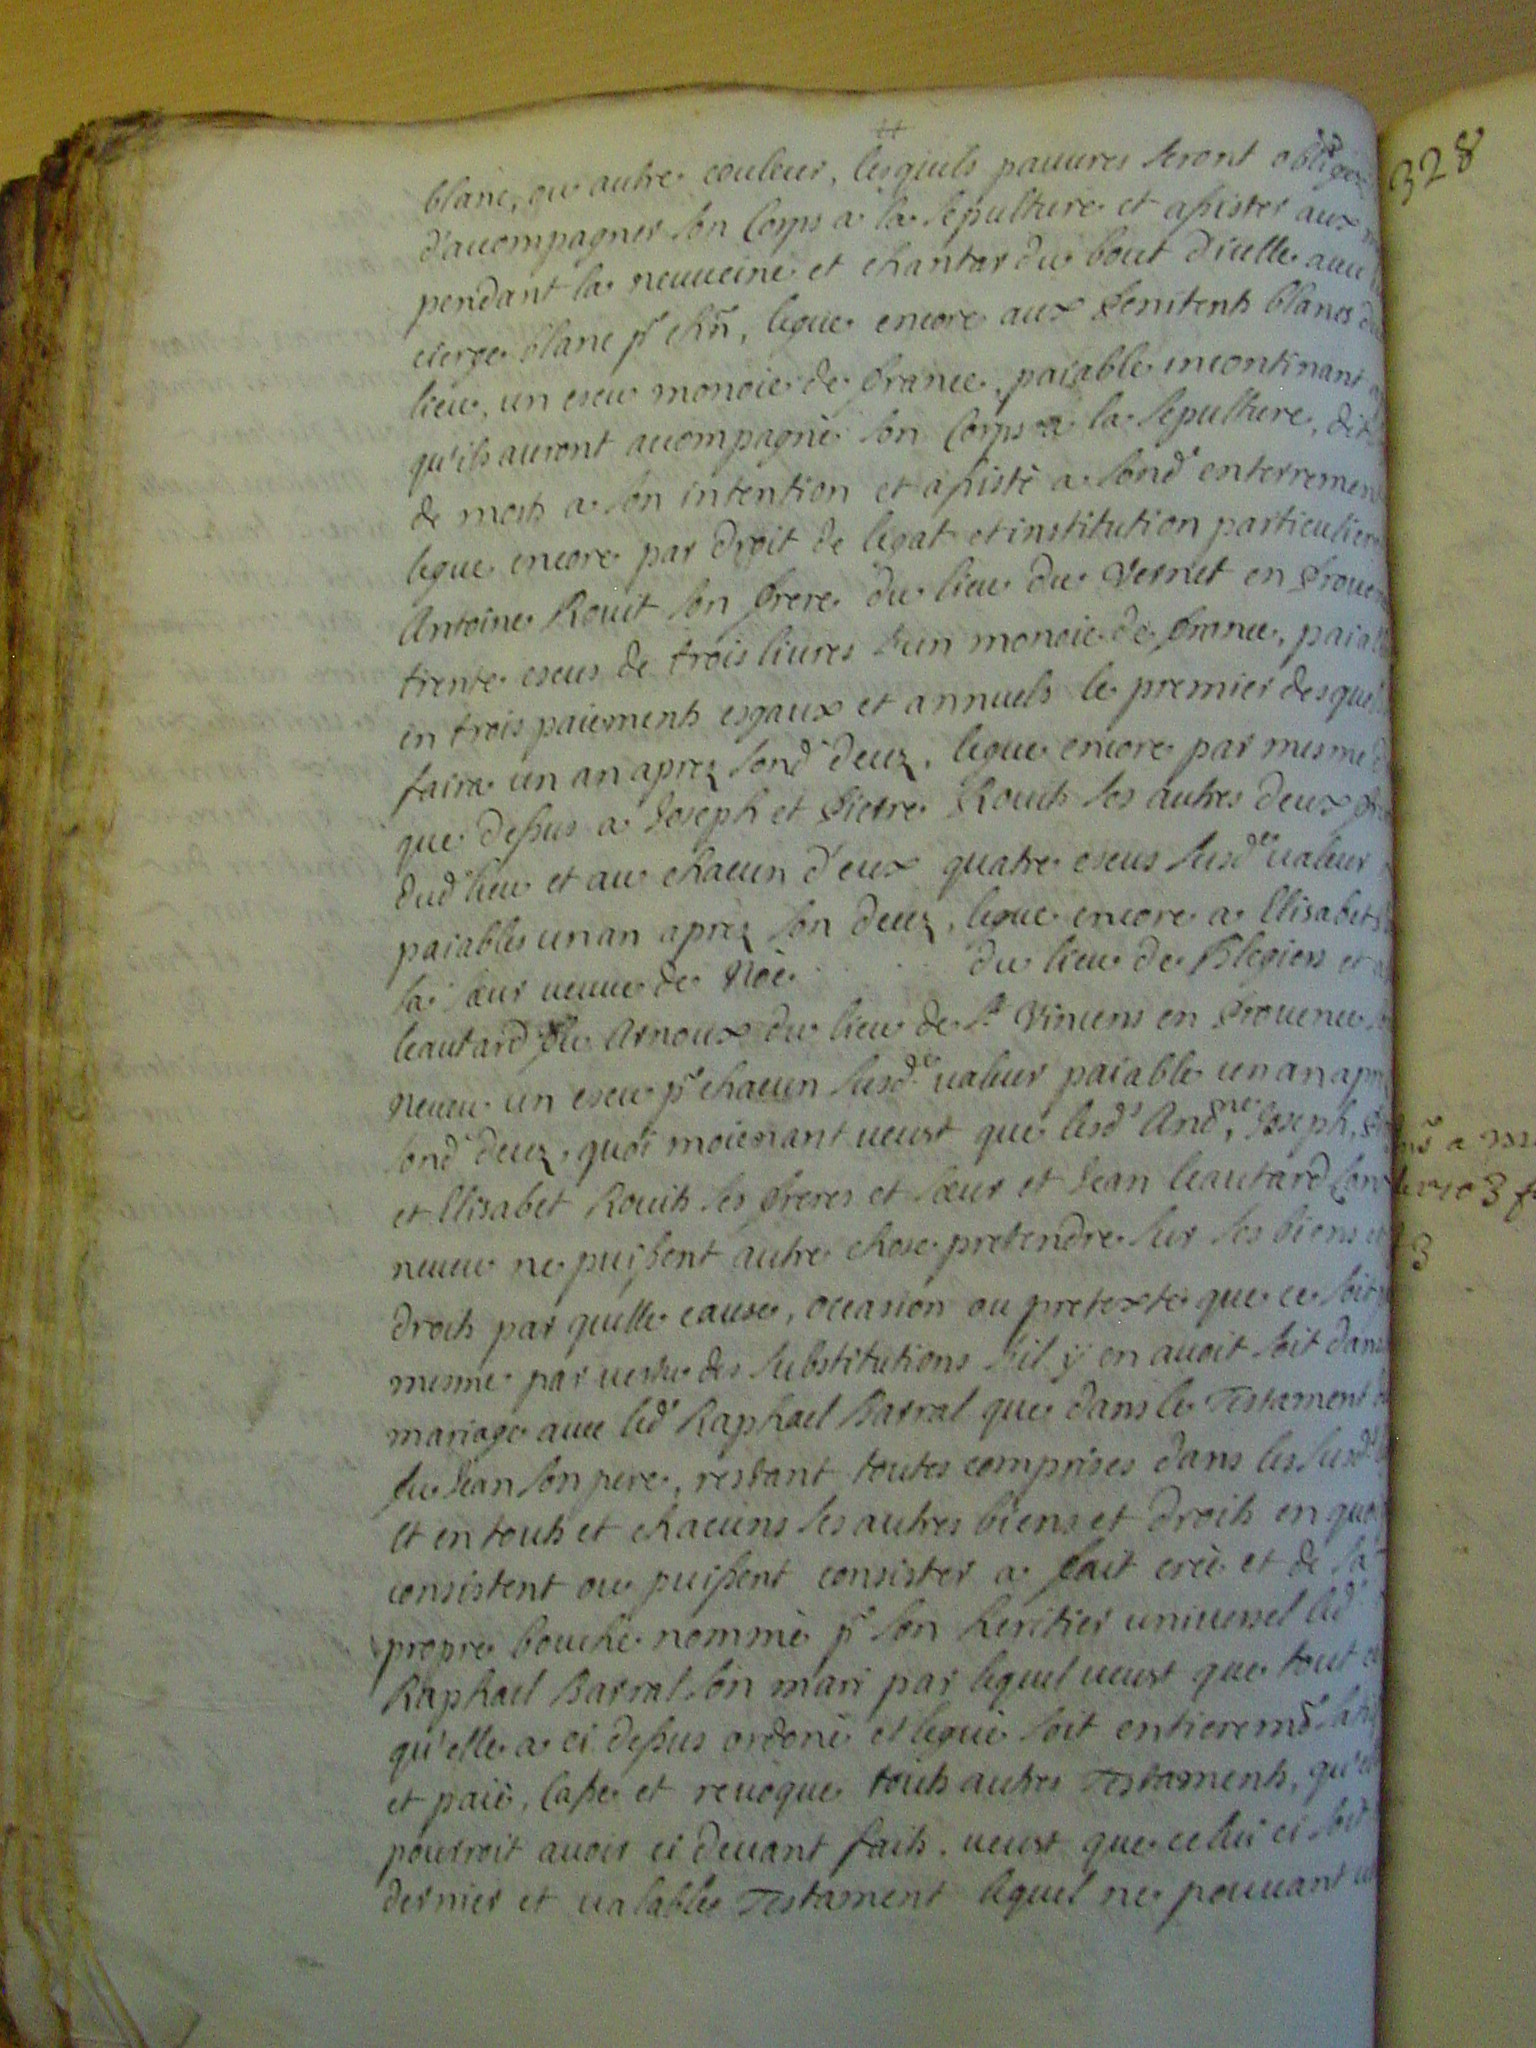 blanc, ou autre couleur, lesquels pauures seront obligés
d'acompagner son Corps a la sepulture et assister aux
pendant la neuueine et chantar du bout d'icelle auec
cierge blanc pr chũ, legue encore aux penitents blancs du
lieu, un escu monoie de france, paiable incontinant
qu'ils auront acompagné son Corps a la sepulture, dit
de morts a son intention et assisté a sond' enterrement
legue encore par droit de legat et institution particuliere
Antoine Rouit son frere du lieu du Vernet en prouence
trente escus de trois liures l'un monoie de france, paiable
en trois paiements esgaux et annuels le premier desquels
faira un an aprez sond' decez, legue encore par mesme
que dessus a Joseph et Pierre Rouits ses autres deux freres
dud' lieu et au chacun d'eux quatre escus susd.e ualeur
paiables un an aprez son decez, legue encore a Elisabet
sa sœur ueuue de Noé du lieu de Blegiers et a
leautard de Arnoux du lieu de St Vincens en prouence
neueu un escu pr chacun susd.e ualeur paiable un an aprez
sond' decez, quoi moienant ueust que lesd's And.ne, Joseph,
et Elisabet Rouits ses freres et sœur et Jean leautard son
neueu ne puissent autre chose pretendre sur ses biens et
droits par quelle cause, occasion ou pretexte que ce soit
mesme par uertu des substitutions s'il ÿ en auoit soit dans
mariage auec led' Raphael Barral que dans le Testament
fu Jean son pere, restant toutes comprises dans les susd.s
Et en touts et chacuns ses autres biens et droits en quoi
consistent ou puissent consister a fait creé et de sa
propre bouche nommé pr son heritier uniuersel led'
Raphael Barral son mari par lequel ueust que tout ce
qu'elle a ci dessus ordoné et legué soit entierem.t
et paié, Casse et reuoque touts autres Testaments, qu'elle
pourroit auoir ci deuant faits, ueust que celui ci soit
dernier et ualable Testament lequel ne pouuant
328
3